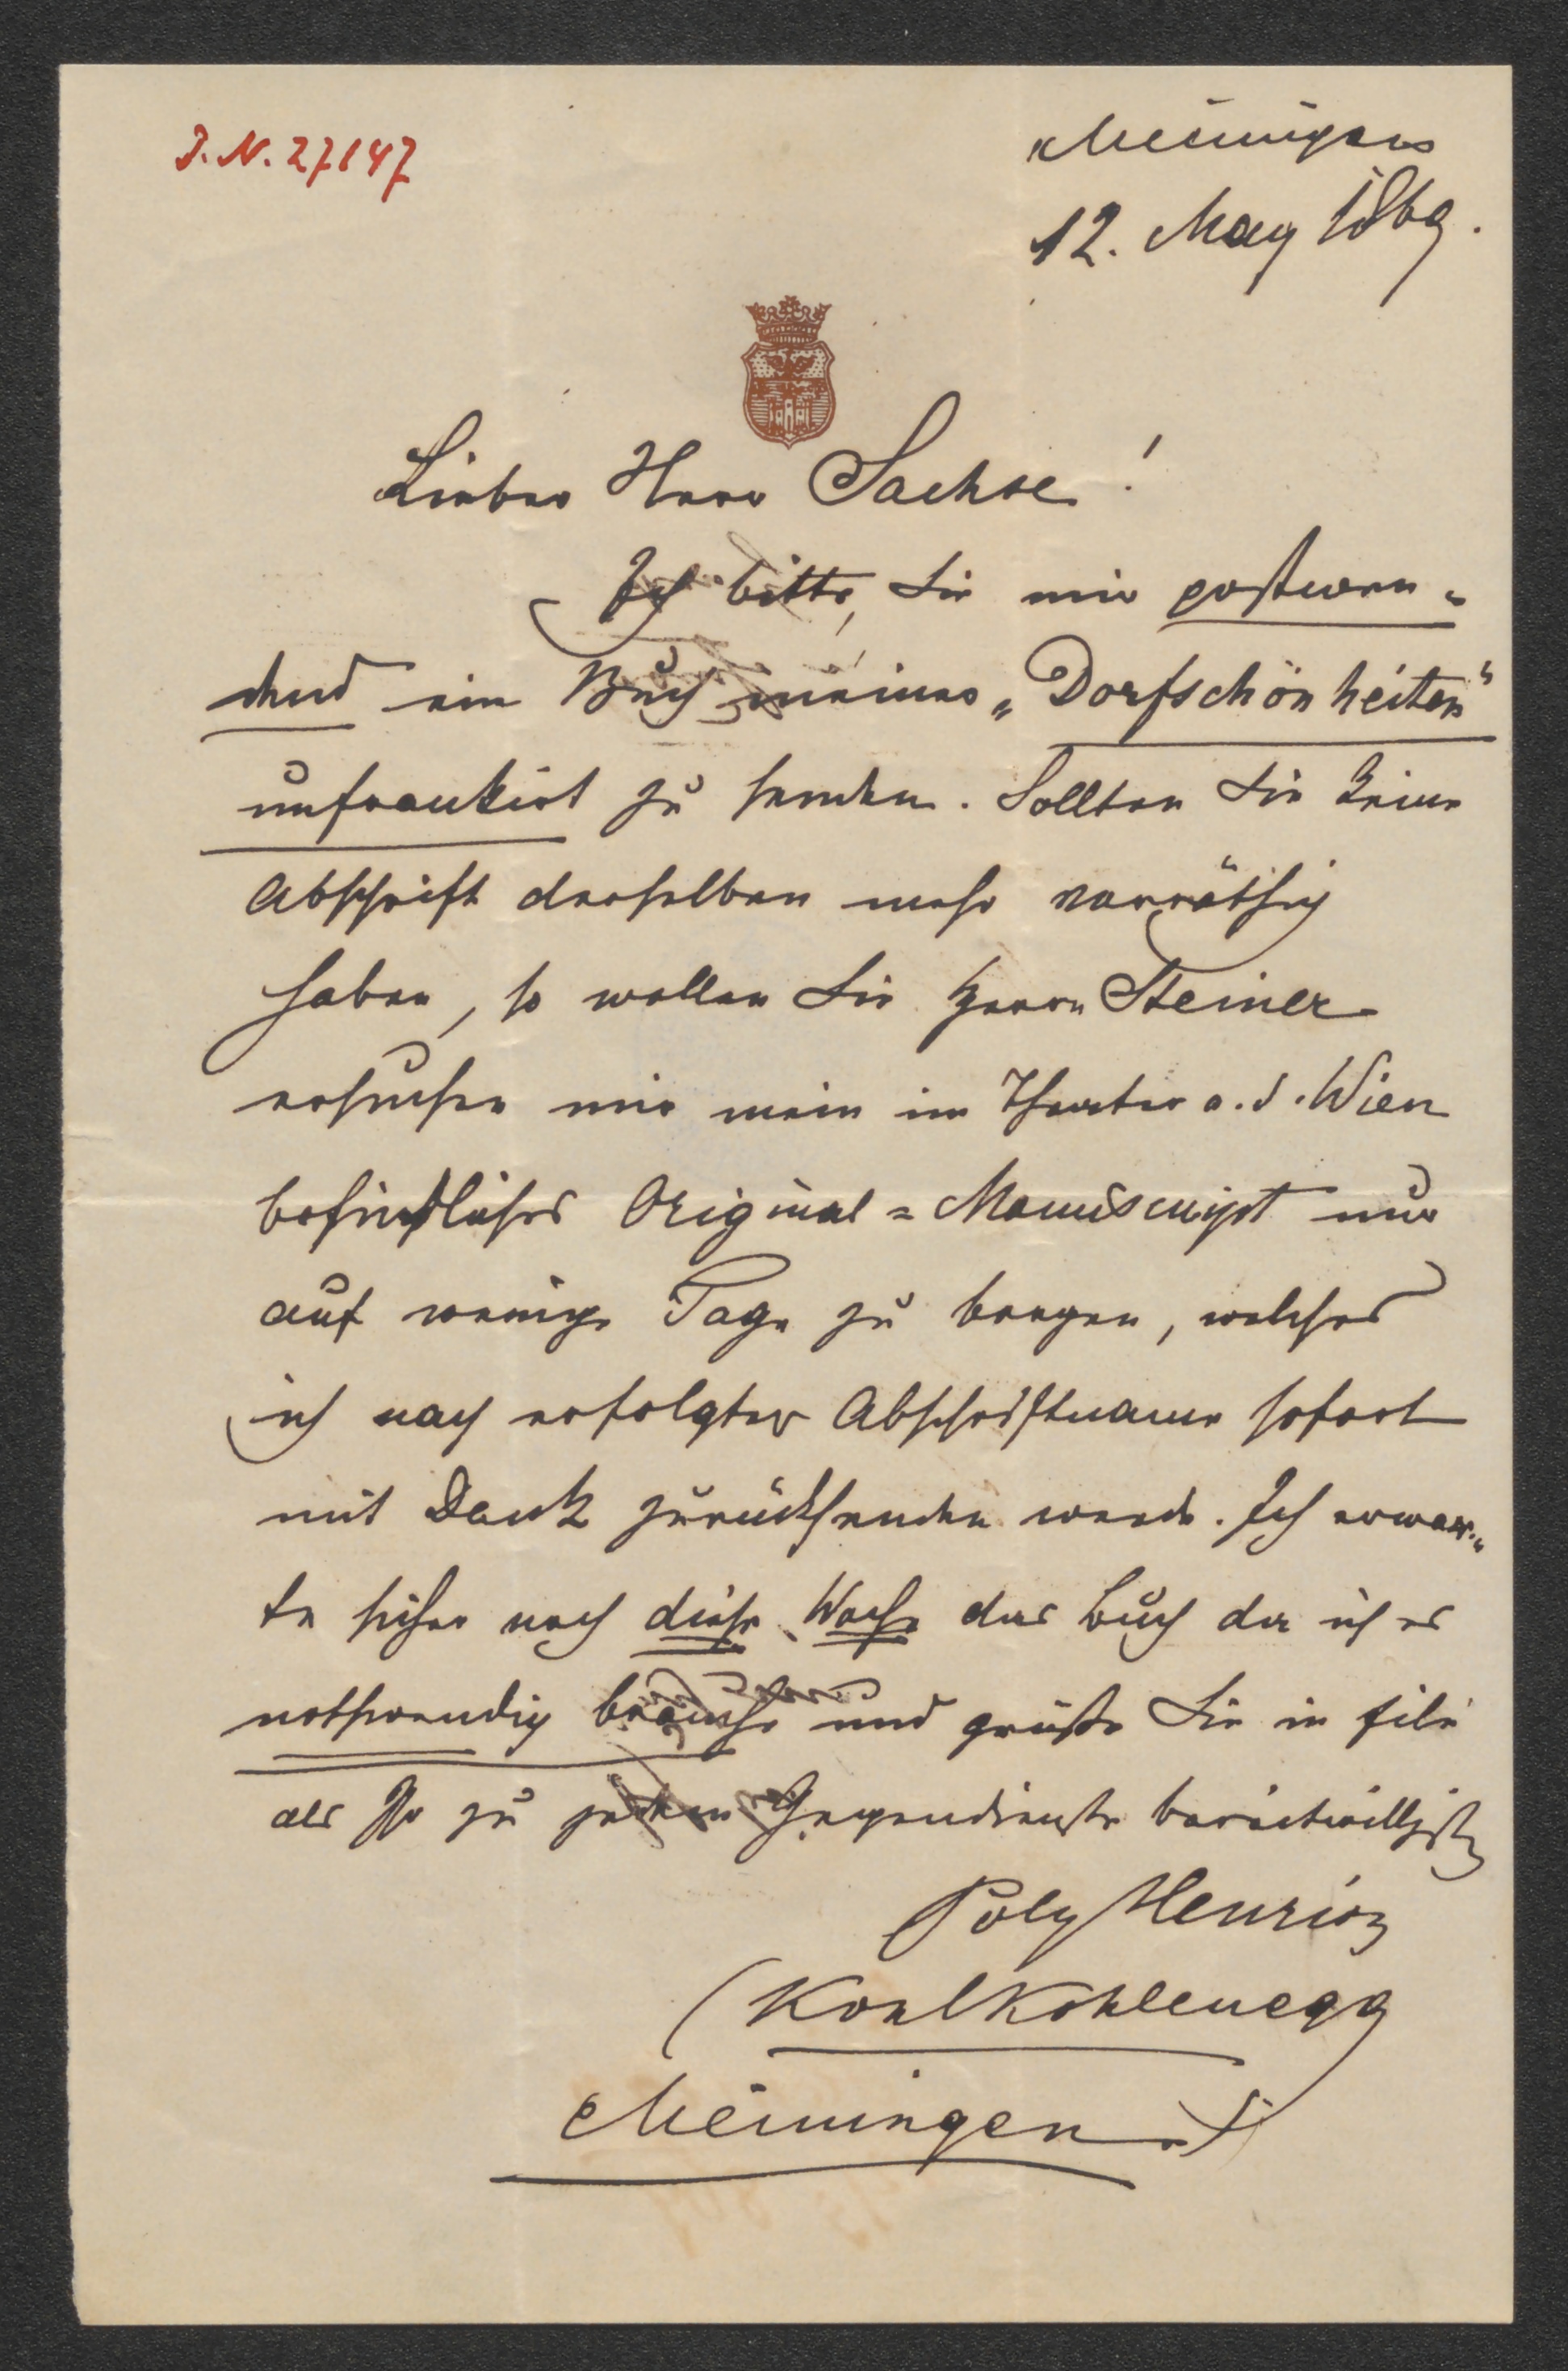 J. N. 27147
Meiningen
12. May 1869.
Lieber Herr Sachse!
Ich bitte, Sie mir postwen=
dend ein Buch meiner „Dorfschönheiten“
unfrankirt zu senden. Sollten Sie keine
Abschrift derselben mehr vorräthig
haben, so wollen Sie Herrn Steiner
ersuchen mir mein im Theater a. d. Wien
befindliches Original=Manuscript nur
auf wenige Tage zu borgen, welches
ich nach erfolgter Abschriftname sofort
mit Dank zurücksenden werde. Ich erwar=
te sicher noch diese Woche das Buch da ich es
nothwendig brauche und grüße Sie in Eile
als Ihr zu jedem Gegendienste bereitwilligster
Poly Henrion
(Kohl Kohlenegg
Meiningen.)